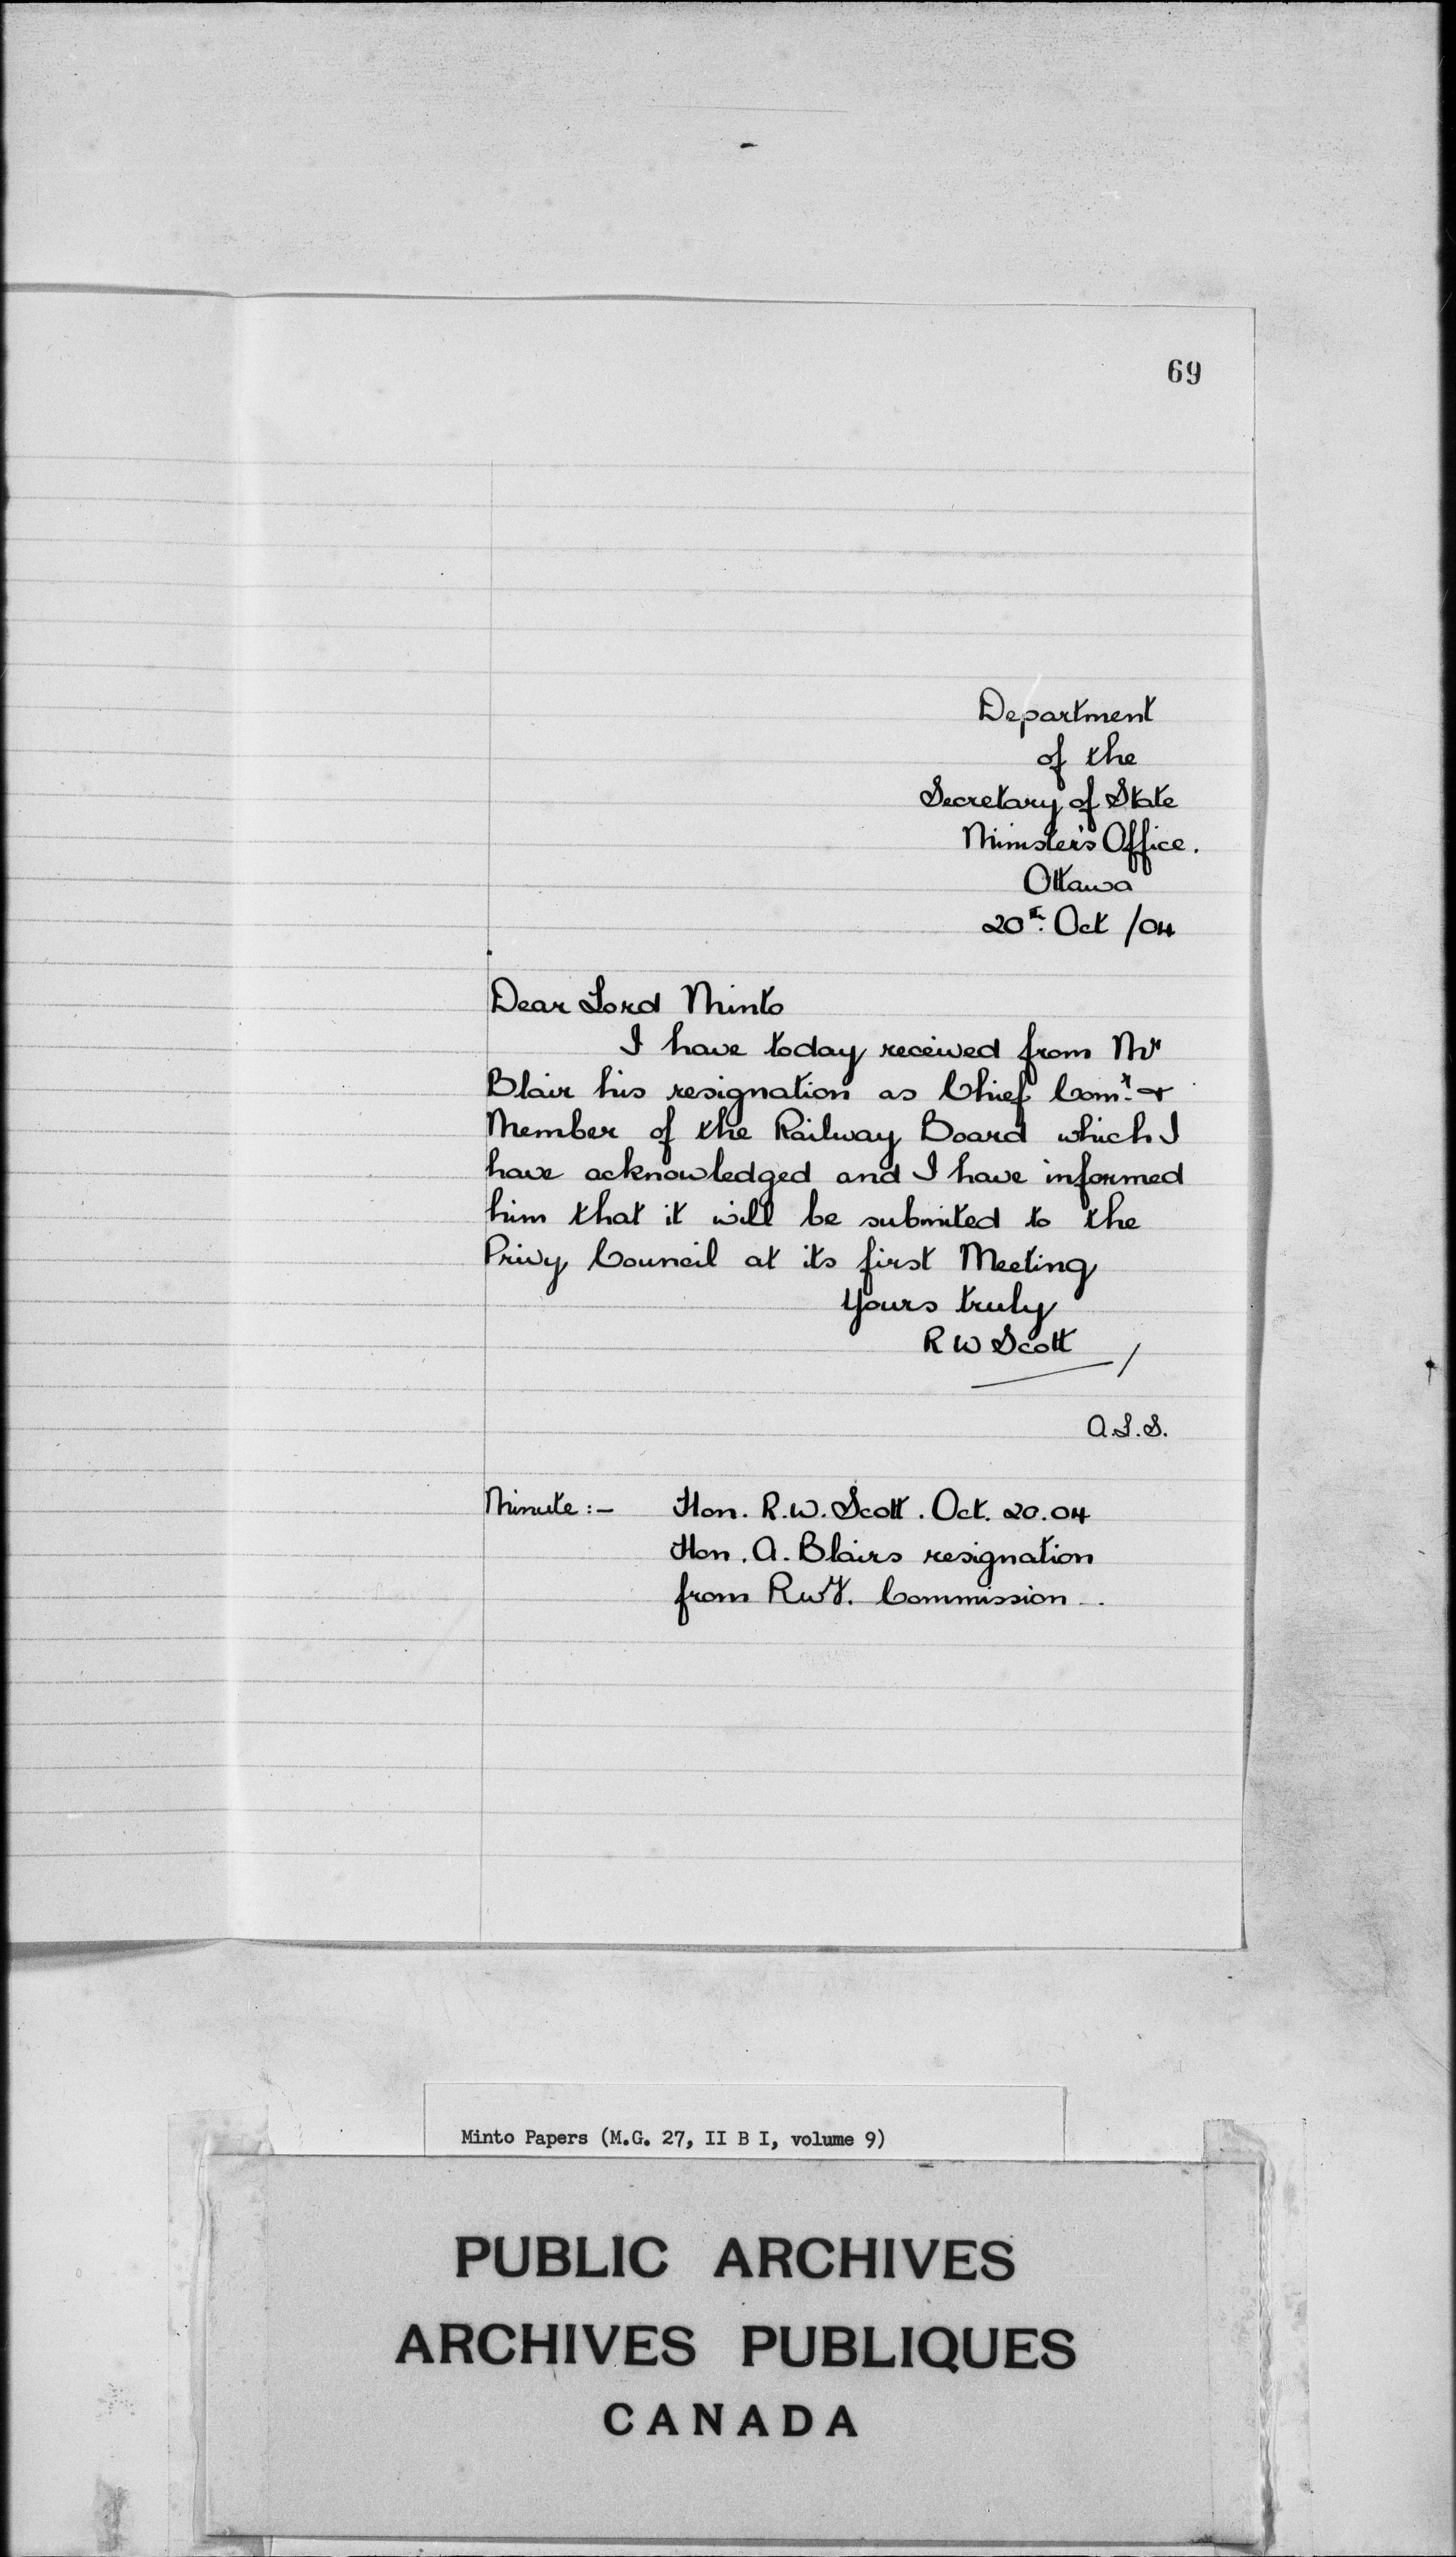 69
Department
of the
Secretary of State
Minister's Office.
Ottawa
20th. Oct /04
Dear Lord Minto
I have today received from Mr
Blair his resignation as Chief Comr. &
Member of the Railway Board which I
have acknowledged and I have informed
him that it will be submited to the
Privy Council at its first Meeting
Yours truly
R W Scott
A.L.S.
Minute :- Hon. R.W. Scott. Oct. 20.04
Hon. A. Blairs resignation
from Rwy. Commission.
Minto Papers (M.G. 27, II B I, volume 9)
PUBLIC ARCHIVES
ARCHIVES PUBLIQUES
CANADA